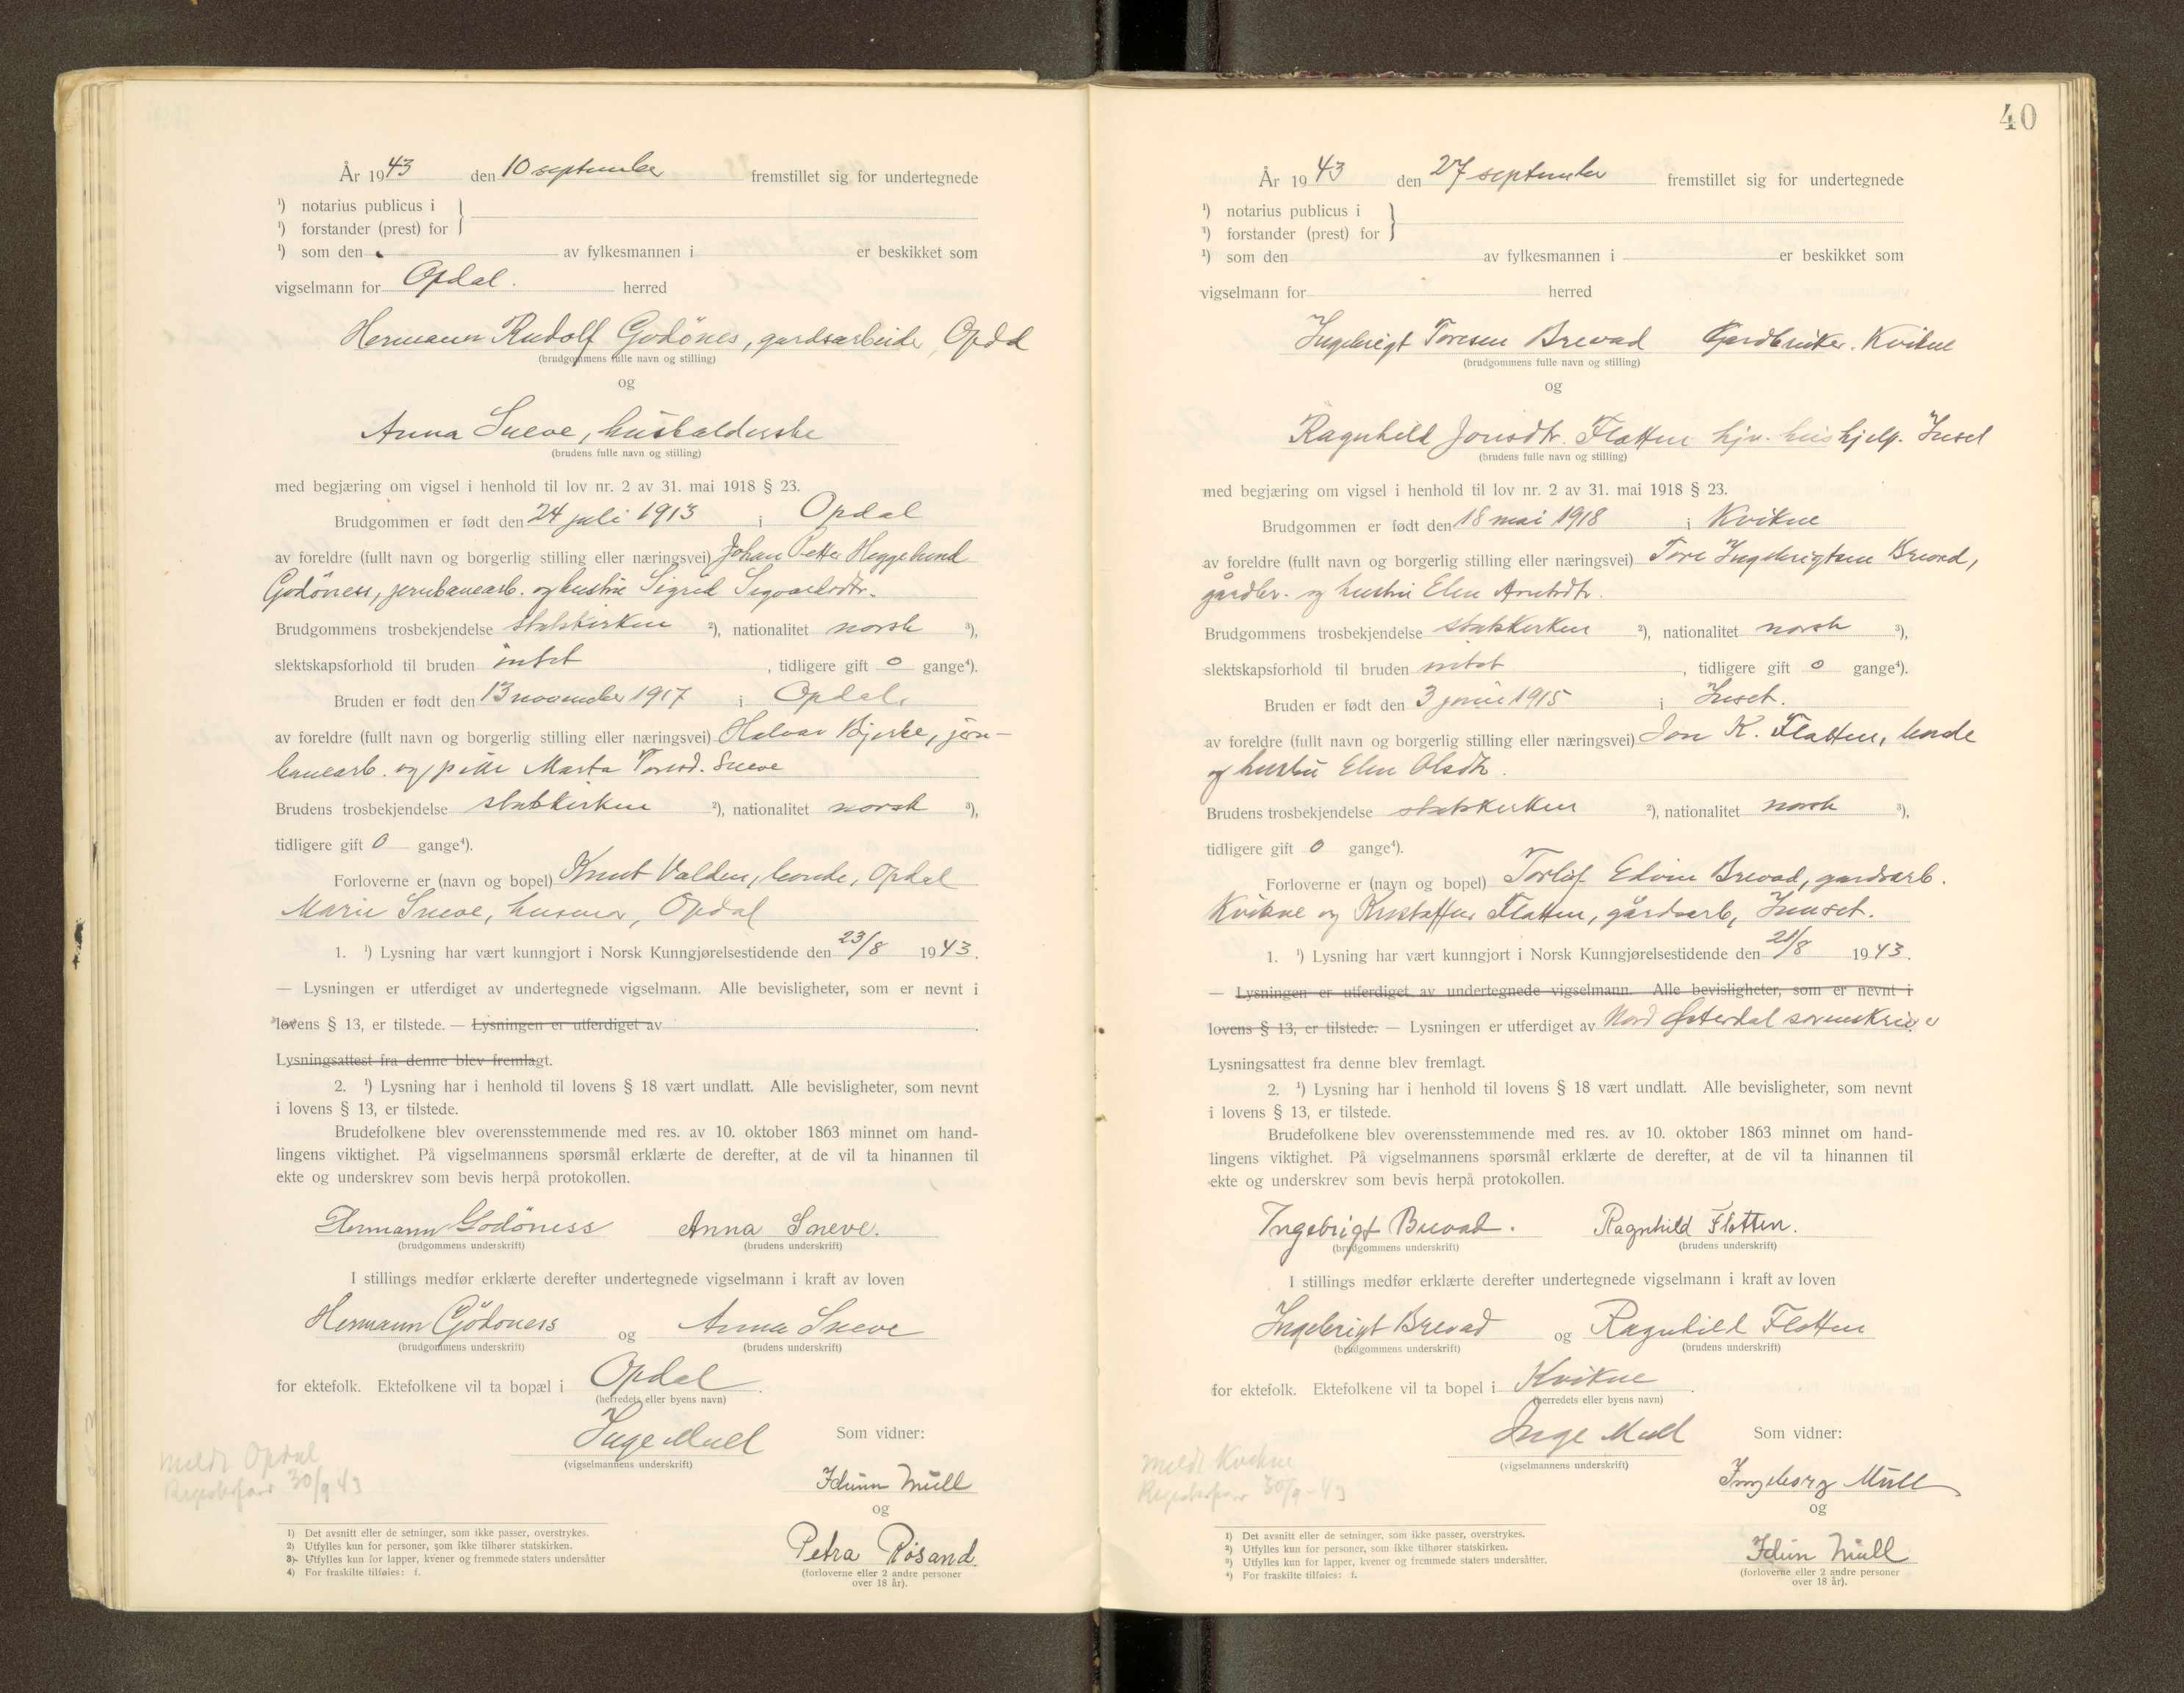 År 1943 den 10 september fremstillet sig for undertegnede
¹) notarius publicus i
¹) forstander (prest) for
¹) som den av fylkesmannen i er beskikket som
vigselmann for Opdal. herred
Hermann Rudolf Godönes, gardsarbeider, Opdal
(brudgommens fulle navn og stilling)
og
Anna Sneve, husholderske
(brudens fulle navn og stilling)
med begjæring om vigsel i henhold til lov nr. 2 av 31. mai 1918 § 23.
Brudgommen er født den 24 juli 1913 i Opdal
av foreldre (fullt navn og borgerlig stilling eller næringsvei) Johan Petter Heggelund
Godöness, jernbanearb. og hustru Sigrid Sigvartsdtr.
Brudgommens trosbekjendelse statskirken ²), nationalitet norsk ³),
slektskapsforhold til bruden intet, tidligere gift 0 gange⁴).
Bruden er født den 13 november 1917 i Opdal.
av foreldre (fullt navn og borgerlig stilling eller næringsvei) Halvar Bjerke, jern-
banearb. og pike Marta Toresd. Sneve
Brudens trosbekjendelse statskirken ²), nationalitet norsk ³),
tidligere gift 0 gange⁴).
Forloverne er (navn og bopel) Knut Valden, bonde, Opdal
Marie Sneve, husmor, Opdal
1. ¹) Lysning har vært kunngjort i Norsk Kunngjørelsestidende den 23/8 1943.
— Lysningen er utferdiget av undertegnede vigselmann. Alle bevisligheter, som er nevnt i
lovens § 13, er tilstede. — Lysningen er utferdiget av .
Lysningsattest fra denne blev fremlagt.
2. ¹) Lysning har i henhold til lovens § 18 vært undlatt. Alle bevisligheter, som nevnt
i lovens § 13, er tilstede.
Brudefolkene blev overensstemmende med res. av 10. oktober 1863 minnet om hand-
lingens viktighet. På vigselmannens spørsmål erklærte de derefter, at de vil ta hinannen til
ekte og underskrev som bevis herpå protokollen.
Hermann Godöness Anna Sneve.
(brudgommens underskrift) (brudens underskrift)
I stillings medfør erklærte derefter undertegnede vigselmann i kraft av loven
Hermann Godöness og Anna Sneve
(brudgommens underskrift) (brudens underskrift)
for ektefolk. Ektefolkene vil ta bopæl i Opdal.
(herredets eller byens navn)
Inge Müll Som vidner:
(vigselmannens underskrift)
Meldt Opdal
30/9 43
Idunn Müll
og
Petra Røsand.
(forloverne eller 2 andre personer
over 18 år).
1) Det avsnitt eller de setninger, som ikke passer, overstrykes.
2) Utfylles kun for personer, som ikke tilhører statskirken.
3) Utfylles kun for lapper, kvener og fremmede staters undersåtter
4) For fraskilte tilføies: f.
40
År 1943 den 27 september fremstillet sig for undertegnede
¹) notarius publicus i
¹) forstander (prest) for
¹) som den av fylkesmannen i er beskikket som
vigselmann for herred
Ingebrigt Toresen Brevad Gardbruker. Kvikne
(brudgommens fulle navn og stilling)
og
Ragnhild Jonsdtr. Flatten hjv. hushjelp. Inset
(brudens fulle navn og stilling)
med begjæring om vigsel i henhold til lov nr. 2 av 31. mai 1918 § 23.
Brudgommen er født den 18 mai 1918 i Kvikne
av foreldre (fullt navn og borgerlig stilling eller næringsvei) Tore Ingebrigtsen Brevad,
gårdbr. og hustru Elen Arntsdtr.
Brudgommens trosbekjendelse statskirken ²), nationalitet norsk ³),
slektskapsforhold til bruden intet, tidligere gift 0 gange⁴).
Bruden er født den 3 juni 1915 i Inset.
av foreldre (fullt navn og borgerlig stilling eller næringsvei) Jon K. Flatten, bonde
og hustru Elen Olsdtr.
Brudens trosbekjendelse statskirken ²), nationalitet norsk ³),
tidligere gift 0 gange⁴).
Forloverne er (navn og bopel) Torlof Edvin Brevad, gardsarb.
Kvikne og Kristoffer Flatten, gårdsarb, Innset.
1. ¹) Lysning har vært kunngjort i Norsk Kunngjørelsestidende den 21/8 1943.
— Lysningen er utferdiget av undertegnede vigselmann. Alle bevisligheter, som er nevnt i
lovens § 13, er tilstede. — Lysningen er utferdiget av Nord Østerdal sorenskriver
Lysningsattest fra denne blev fremlagt.
2. ¹) Lysning har i henhold til lovens § 18 vært undlatt. Alle bevisligheter, som nevnt
i lovens § 13, er tilstede.
Brudefolkene blev overensstemmende med res. av 10. oktober 1863 minnet om hand-
lingens viktighet. På vigselmannens spørsmål erklærte de derefter, at de vil ta hinannen til
ekte og underskrev som bevis herpå protokollen.
Ingebrigt Brevad. Ragnhild Flatten.
(brudgommens underskrift) (brudens underskrift)
I stillings medfør erklærte derefter undertegnede vigselmann i kraft av loven
Ingebrigt Brevad og Ragnhild Flatten
(brudgommens underskrift) (brudens underskrift)
for ektefolk. Ektefolkene vil ta bopel i Kvikne.
(herredets eller byens navn)
Inge Müll Som vidner:
(vigselmannens underskrift)
Meldt Kvikne
30/9-43
Ingeborg Müll
og
Idun Müll
(forloverne eller 2 andre personer
over 18 år).
1) Det avsnitt eller de setninger, som ikke passer, overstrykes.
2) Utfylles kun for personer, som ikke tilhører statskirken.
3) Utfylles kun for lapper, kvener og fremmede staters undersåtter.
4) For fraskilte tilføies: f.